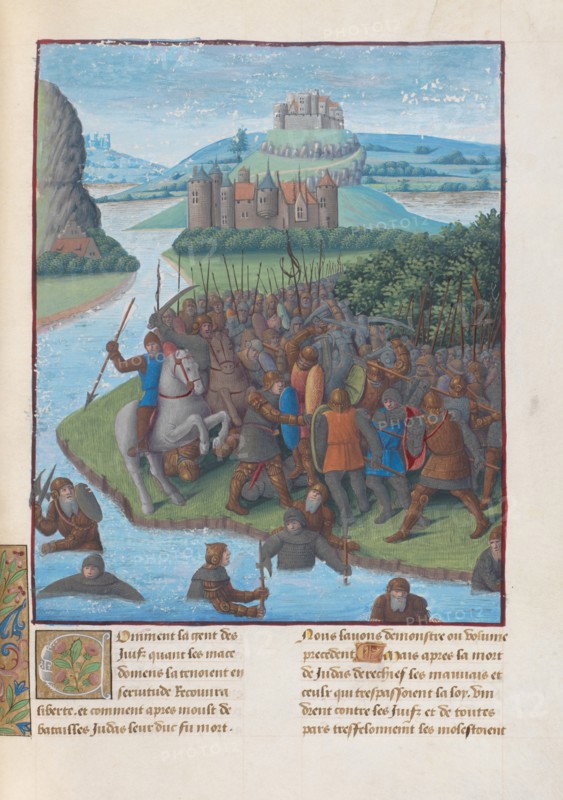 Comment la gent des
Juifz quant les mace
domens la tenoient en
seruitude Recouura
liberte, et comment apres moult de
batailles Judas leur duc fu mort.
Nous lauons demonstre ou volume
precedent Mais apres la mort
de Judas derechief les mauuais et
ceulx qui trespassoient la loy. vin
drent contre les Juifz et de toutes
pars tresfelonnent les molestoient
PHOTO12